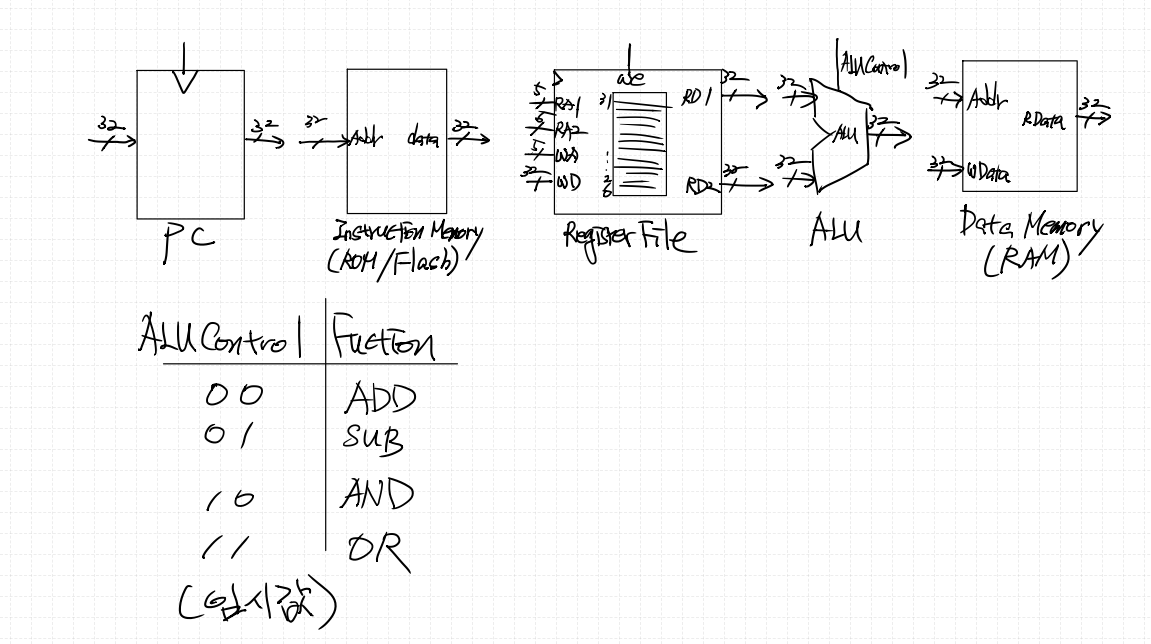 32
32
PC
32
Addr
data
32
Instruction Memory
(ROM/Flash)
we
5
RA1
5
RA2
5
WA
32
WD
31
2
0
RD1
32
RD2
32
Register File
ALUControl
32
32
ALU
32
ALU
32
Addr
32
WData
RData
32
Data Memory
(RAM)
ALUControl
Fuction
00
ADD
01
SUB
10
AND
11
OR
(임시값)